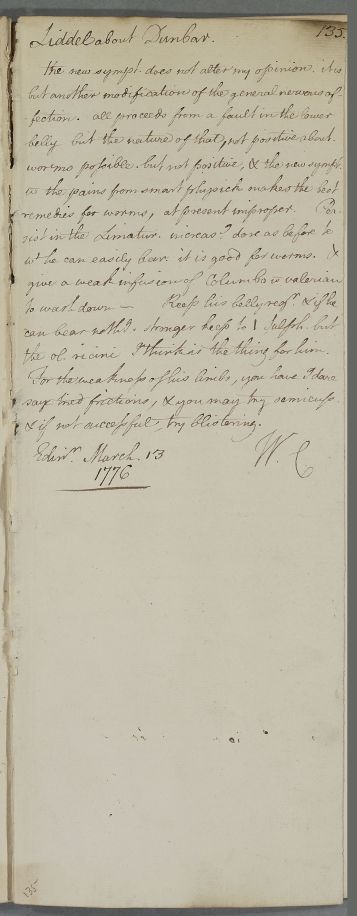 135
Liddel about Dunbar.
the new sympt. does not alter my opinion. it is
but another modification of the general nervous af
fection. all proceeds from a fault in the lower
belly but the nature of that, not positive about.
worms possible. but not positive, & the new sympt.
to the pains from smart physick makes the best
remedies for worms, at present improper. Per
sist in the Limatur. increas.g dose as before to
wt he can easily bear. it is good for worms. &
give a weak infusion of Columbo is valerian
to wash down — Keep his belly reg.r & if he
can bear noth.g stronger keep to l Sulph. but
the ol. ricini I think is the thing for him.
For the weakness of his limbs, you have I dare
say tried frictions, & you may try semicup.
& if not successful, try blistering.
Edinr. March. 13
1776
W. C
135